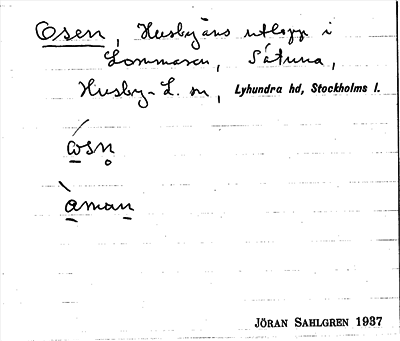 Osen, Husbyåns utlopp i
Lommaren, Såtuna,
Husby-L. sn, Lyhundra hd, Stockholms l.
JÖRAN SAHLGREN 1937